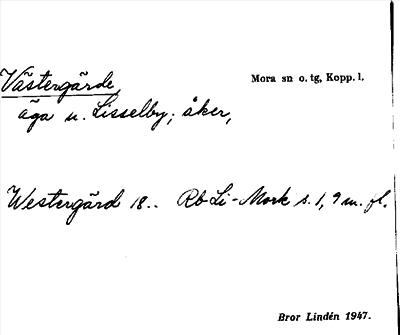 Västergärde, Mora sn o. tg, Kopp. l.
äga u. Lisselby; åker,
Westergärd 18.. Rb Li-Mork s. 1, 9 m. fl.
Bror Lindén 1947.